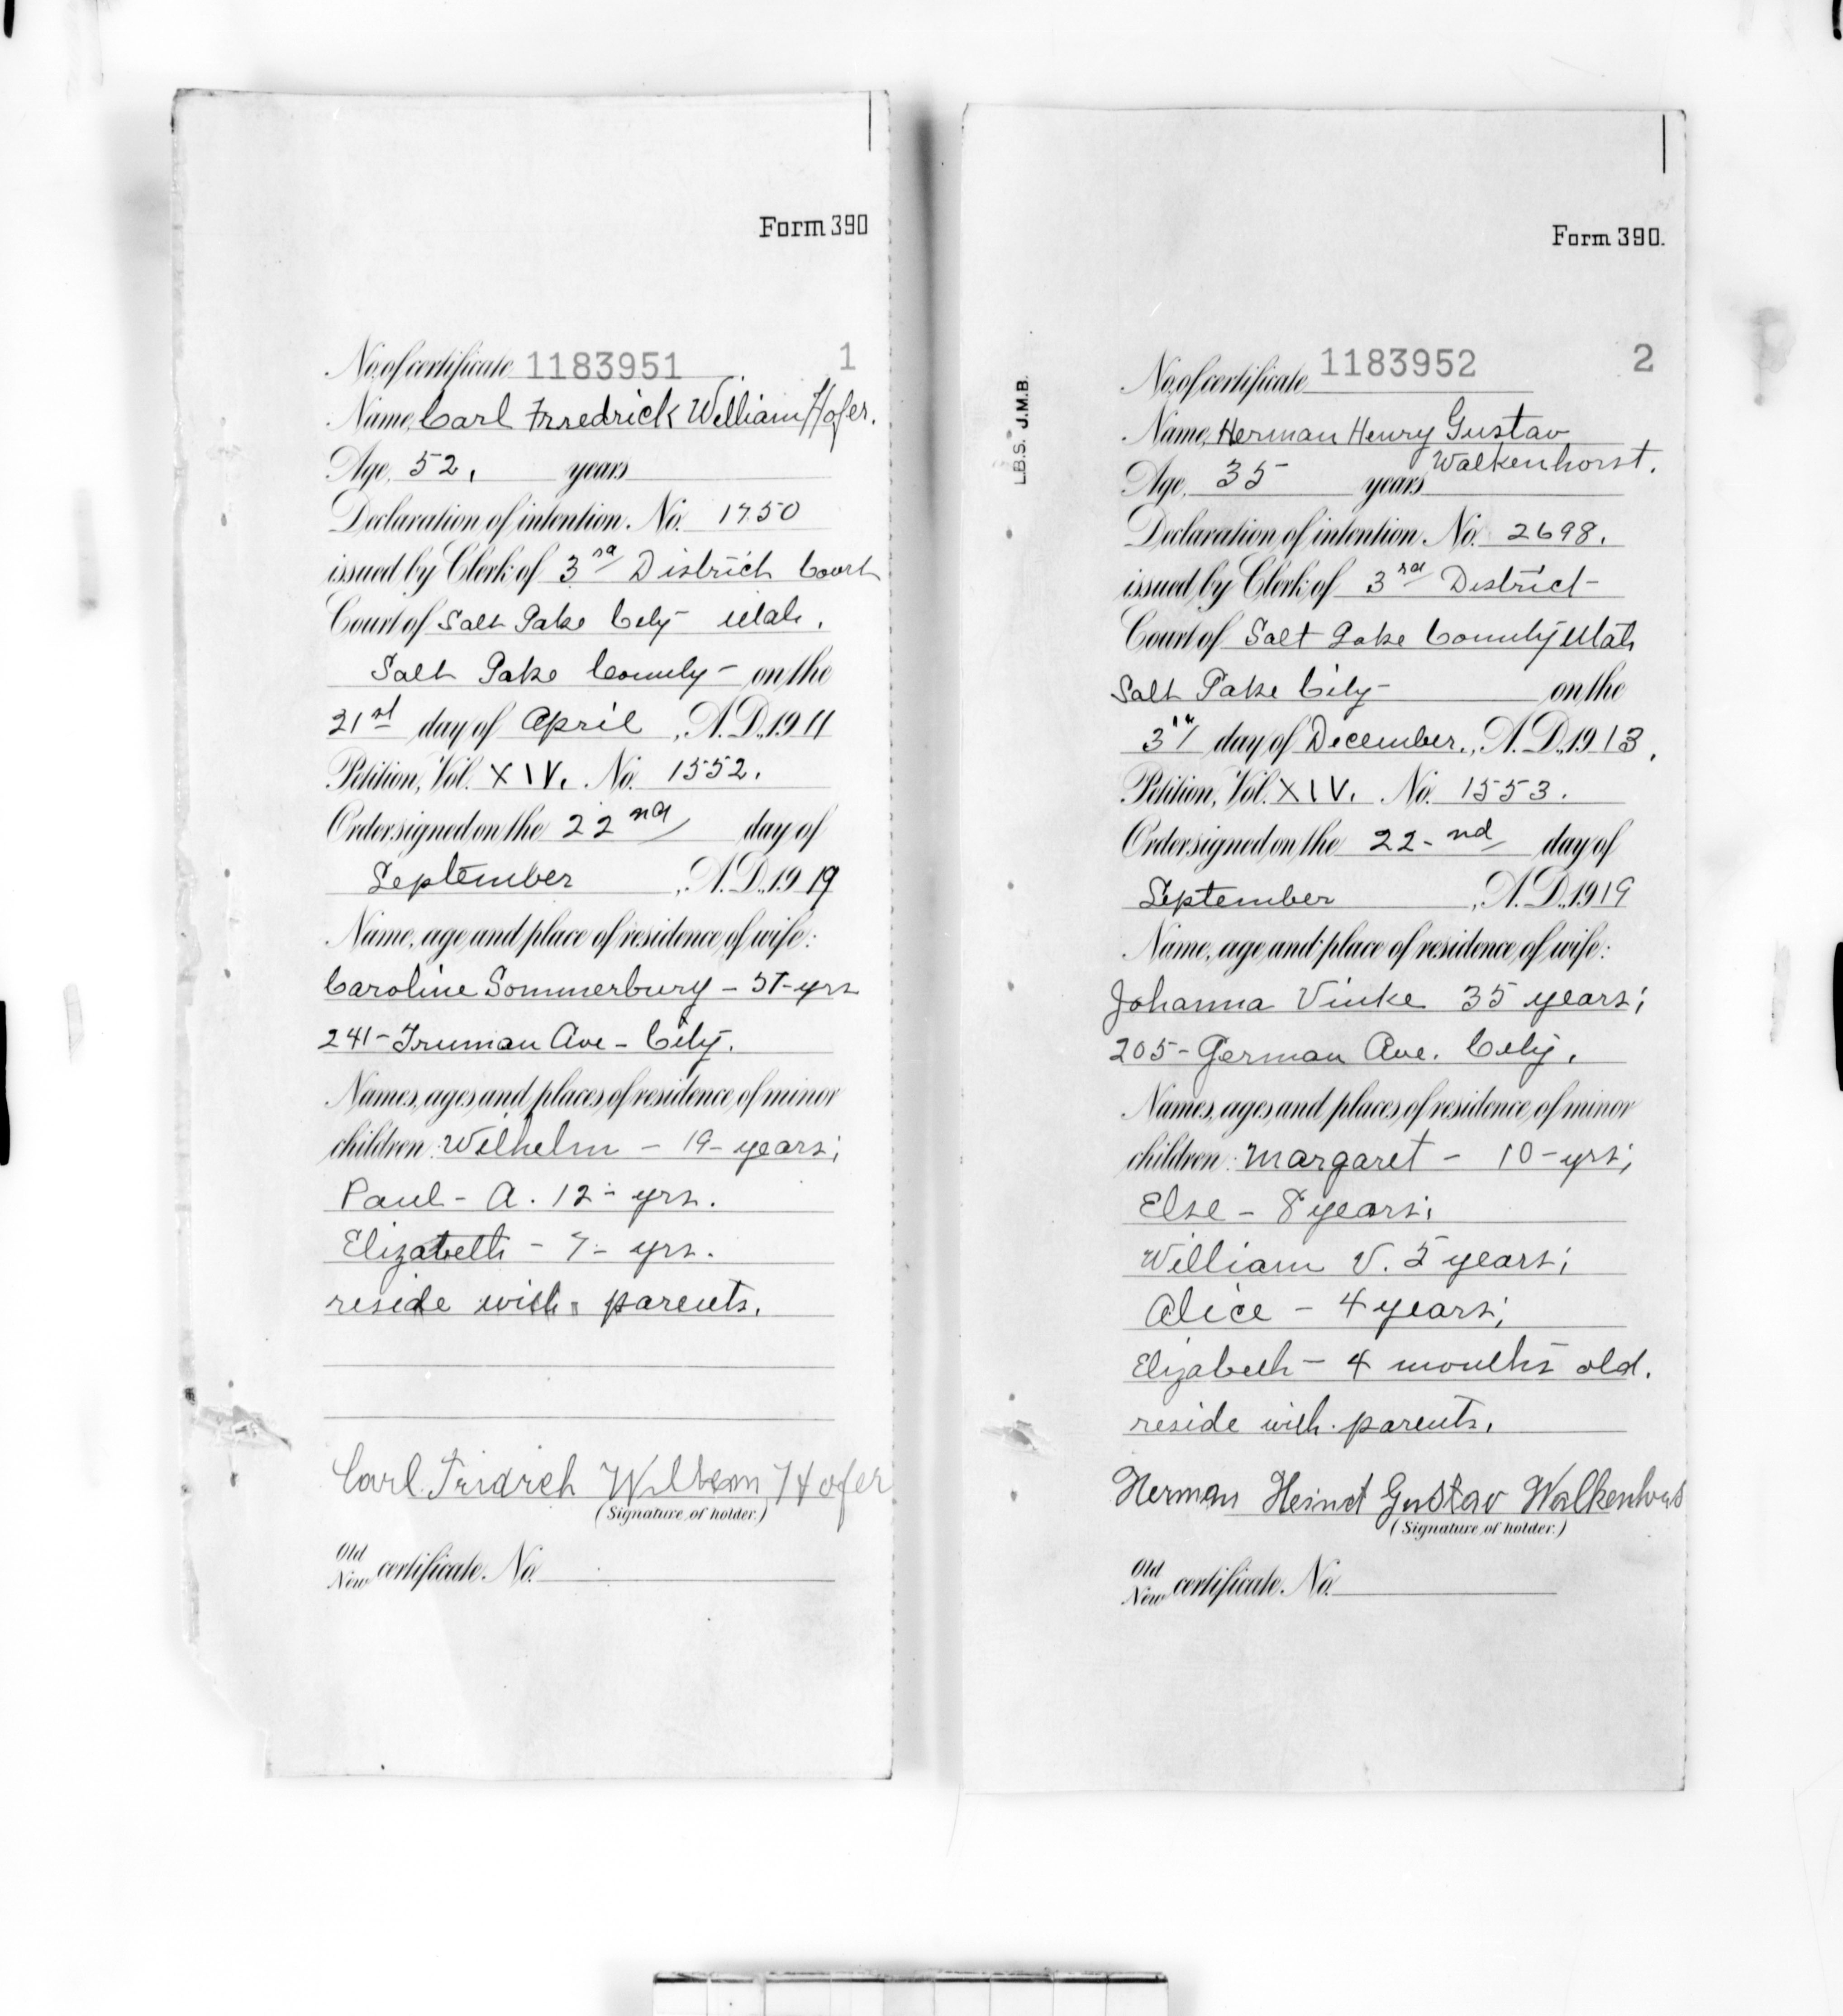 Form 390
No. of certificate 1183951 1
Name, Carl Frredrick William Hofer.
Age, 52, years
Declaration of intention. No. 1750
issued by Clerk of 3rd District Court
Court of Salt Lake City Utah.
Salt Lake County - on the
21st day of April, A. D., 1911
Petition, Vol. XIV. No. 1552.
Order signed on the 22nd day of
September, A. D., 1919
Name, age and place of residence of wife:
Caroline Sommerburg - yrs
241 - Truman Ave - City.
Names, ages and places of residence of minor
children: Wilhelm - 19 - years;
Paul - A. 12 - yrs.
Elizabeth - 7 - yrs.
reside with parents.
Carl Fridrich Hofer
(Signature of holder.)
Old
New certificate No.
Form 390.
L.B.S. J.M.B.
No. of certificate 1183952 2
Name, Herman Henry Gustav
Walkenhorst.
Age, 35 years
Declaration of intention No. 2698.
issued by Clerk of 3rd District -
Court of Salt Lake County Utah
Salt Lake City - on the
3rd day of December., A. D., 1913.
Petition, Vol. XIV. No. 1553.
Order signed on the 22 - nd day of
September, A. D., 1919
Name, age and place of residence of wife:
Johanna Vinke 35 years;
205 - German Ave. City.
Names, ages and places of residence of minor
children: Margaret - 10 - yrs;
Else - 8 years;
William V. 5 years;
Alice - 4 years;
Elizabeth - 4 months old.
reside with parents.
Herman Gustav
(Signature of holder.)
Old
New certificate No.